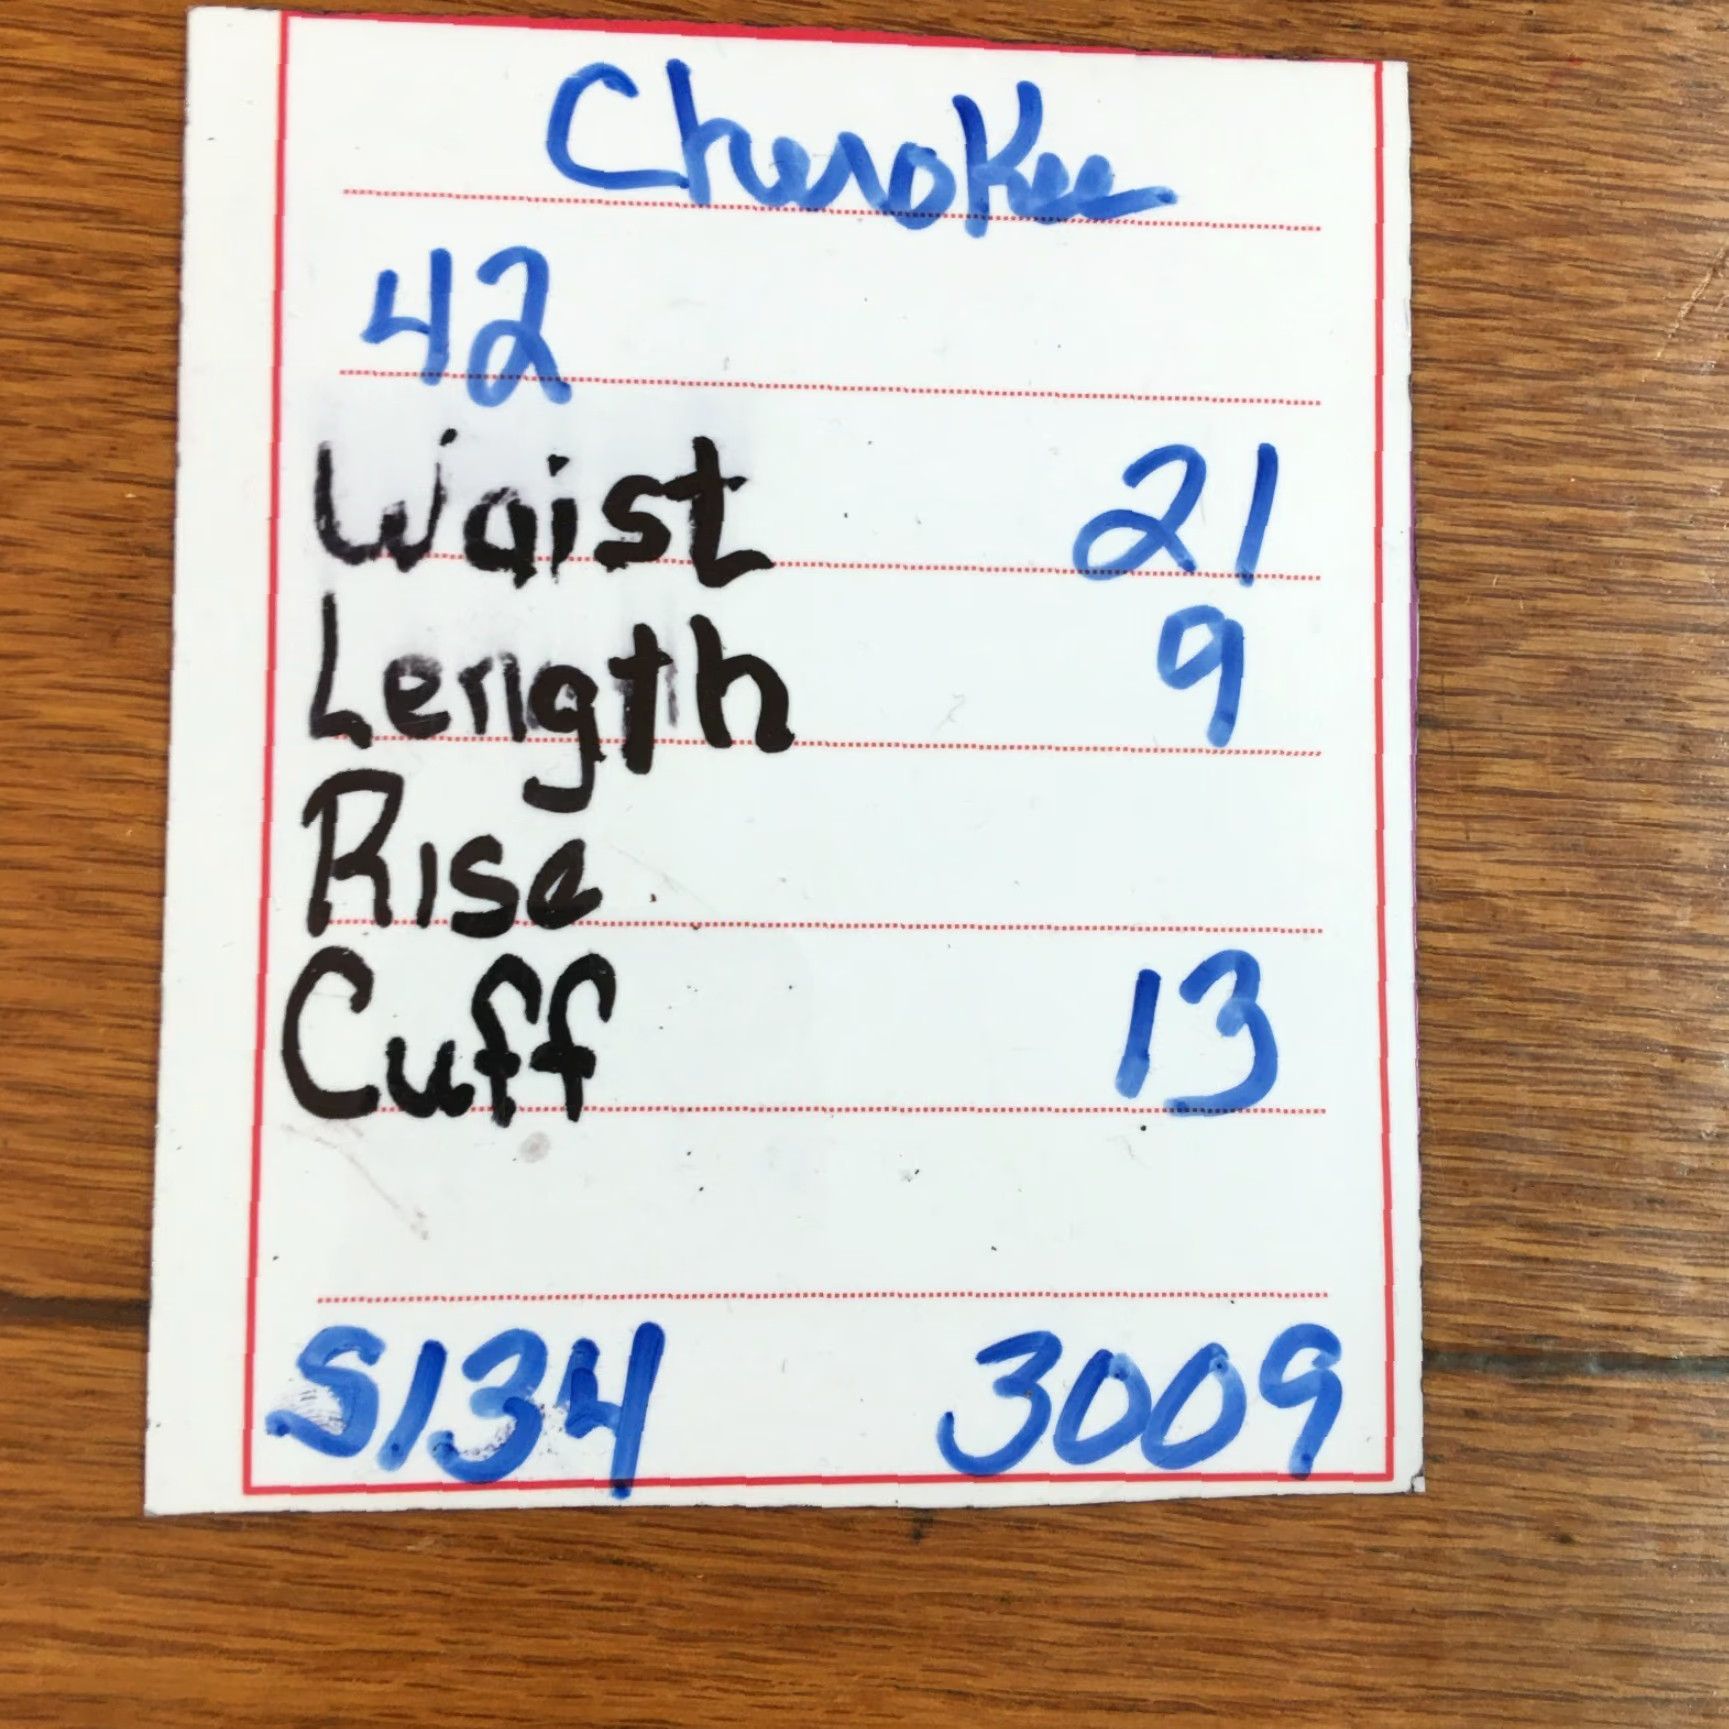 Cherokee
42
Waist 21
Length 9
Rise
Cuff 13
S134 3009